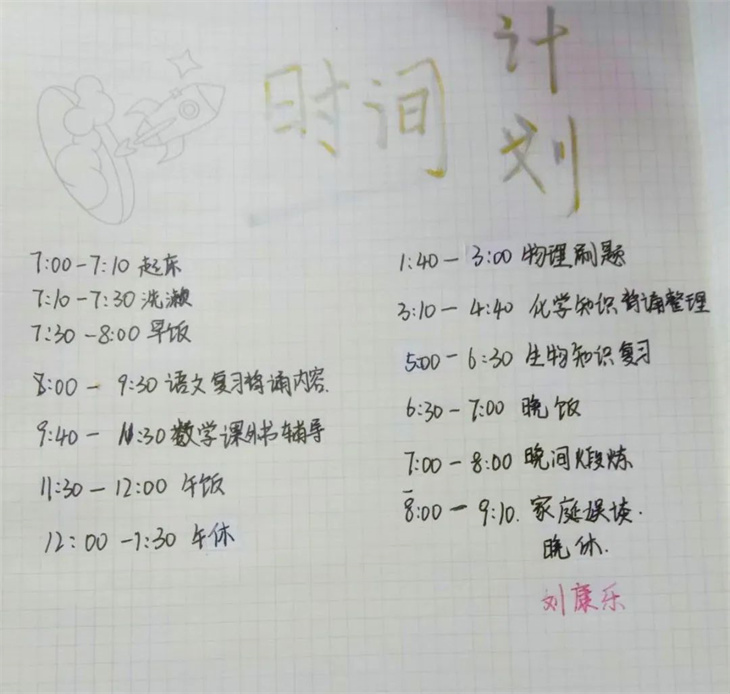 时间计划
7:00-7:10 起床
7:10-7:30 洗漱
7:30-8:00 早饭
8:00- 9:30 语文复习背诵内容.
9:40- 11:30 数学课外书辅导
11:30-12:00 午饭
12:00-1:30 午休
1:40- 3:00 物理刷题
3:10- 4:40 化学知识背诵整理
5:00-6:30 生物知识复习
6:30-7:00 晚饭
7:00-8:00 晚间煅炼
8:00- 9:10. 家庭误读.
晚休.
刘康乐